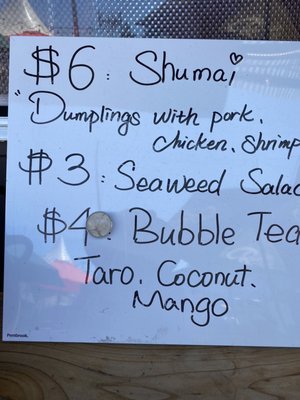 $6 : Shumai
"Dumplings with pork,
chicken, shrimp
$3 : Seaweed Salad
$4 : Bubble Tea
Taro, Coconut,
Mango
Pembrook.